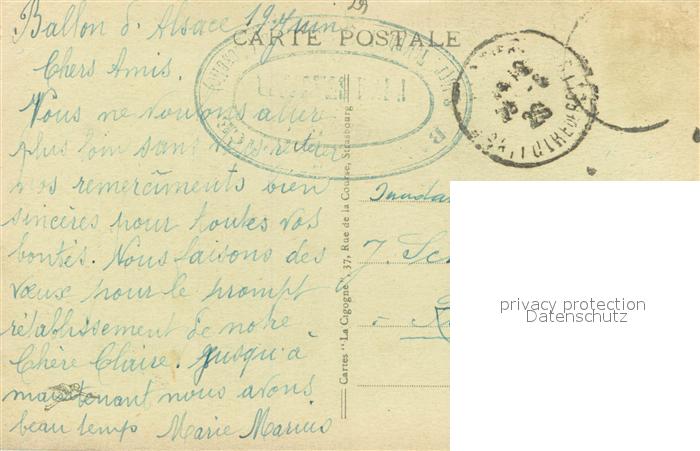 Ballon d'Alsace 19 Juin
29
CARTE POSTALE
Chers Amis.
Nous ne voulons aller
plus loin sans vous réitérer
nos remerciments bien
sincères pour toutes vos
bontés. Nous faisons des
vœux pour le prompt
rétablissement de notre
Chère Claire. Jusqu'à
maintenant nous avons
beau temps Marie Marius
Cartes "La Cigogne", 37, Rue de la Course, Strasbourg
J. Sch
privacy protection
Datenschutz